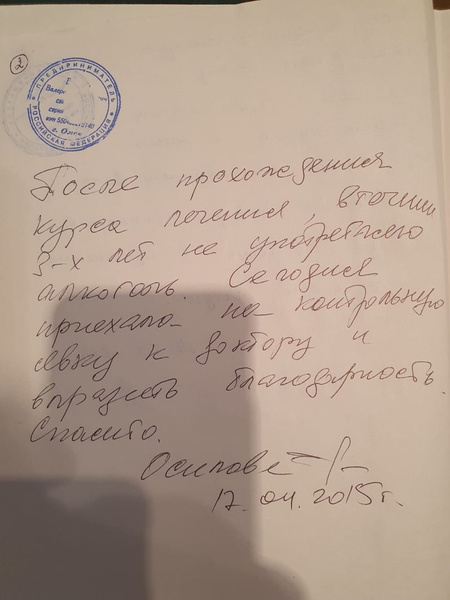 2
ПРЕДПРИНИМАТЕЛЬ
РОССИЙСКАЯ ФЕДЕРАЦИЯ
г. Омск
После прохождения
курса лечения, втечнии
3-х лет не употребляю
алкоголь. Сегодня
приехала на контрольную
явку к доктору и
выразить благодарность.
Спасибо.
17.04.2015г.